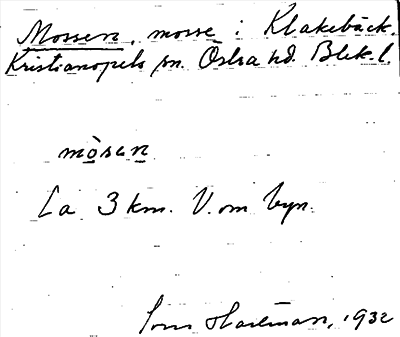 Mossen, mosse i Klakebäck.
Kristianopels sn. Östra hd. Blek. l.
mòsen
Ca 3 km. V. om byn.
Hartman, 1932